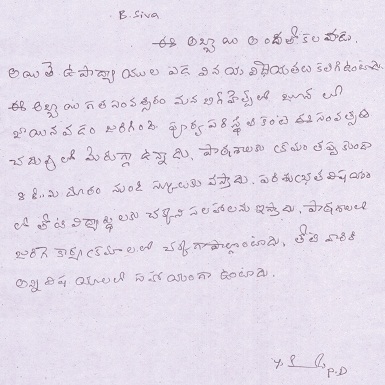 B. Siva
ఈ అబ్బాయి అందతో కలవాడు.
అయితే ఉపాధ్యాయుల ఎడ వినయ విధేయతలు కలిగి ఉంటాడు.
ఈ అబ్బాయి గత సంవత్సరం మన జూన్ లో
జాయినవడం జరిగింది. పూర్వ పరిస్థితి కంటె ఈ సంవత్సరం
చదువులో మెరుగ్గా ఉన్నాడు, పాఠశాలకు క్రమం తప్పకుండా
కి.మీ దూరం నుండి స్కూలుకు వస్తాడు. పరిశుభ్రత విషయం
లో తోటి విద్యార్థులకు చక్కని సలహాలను ఇస్తాడు. పాఠశాలలో
జరిగే కార్యక్రమాలలో చక్కగా పాల్గొంటాడు, తోటి వారికి
అన్ని విషయాలలో సహాయంగా ఉంటాడు.
P.D